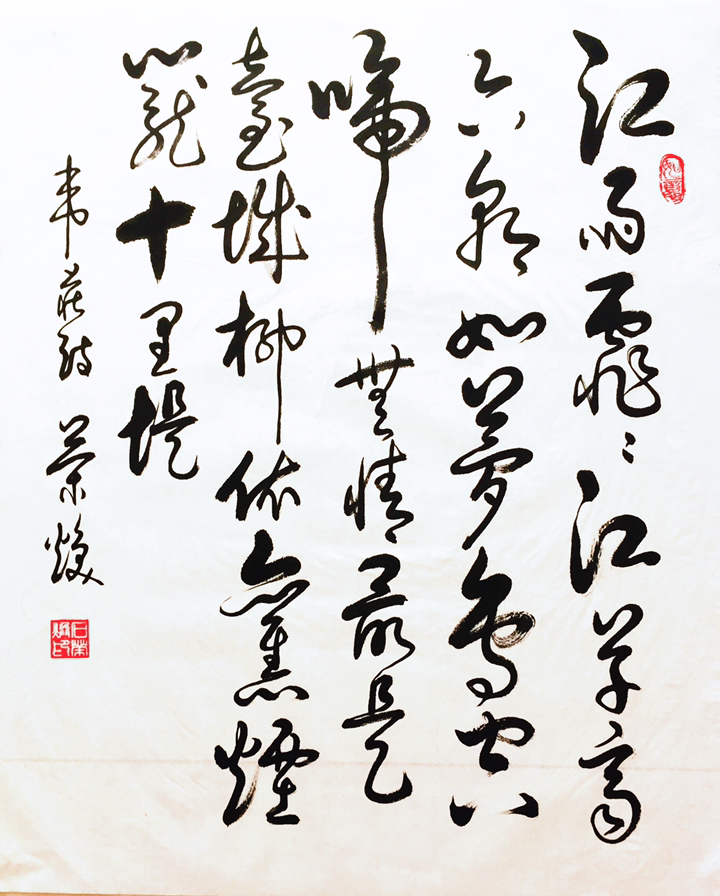 江雨霏〻江草齊
六朝如夢鳥空
啼無情最是
臺城柳依舊煙
籠十里堤
韋莊詩 榮煥
石榮煥印